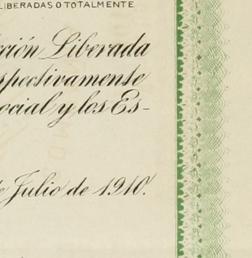 LIBERADAS O TOTALMENTE
Liberada
spectivamente
ocial y los Es-
Julio de 1910.